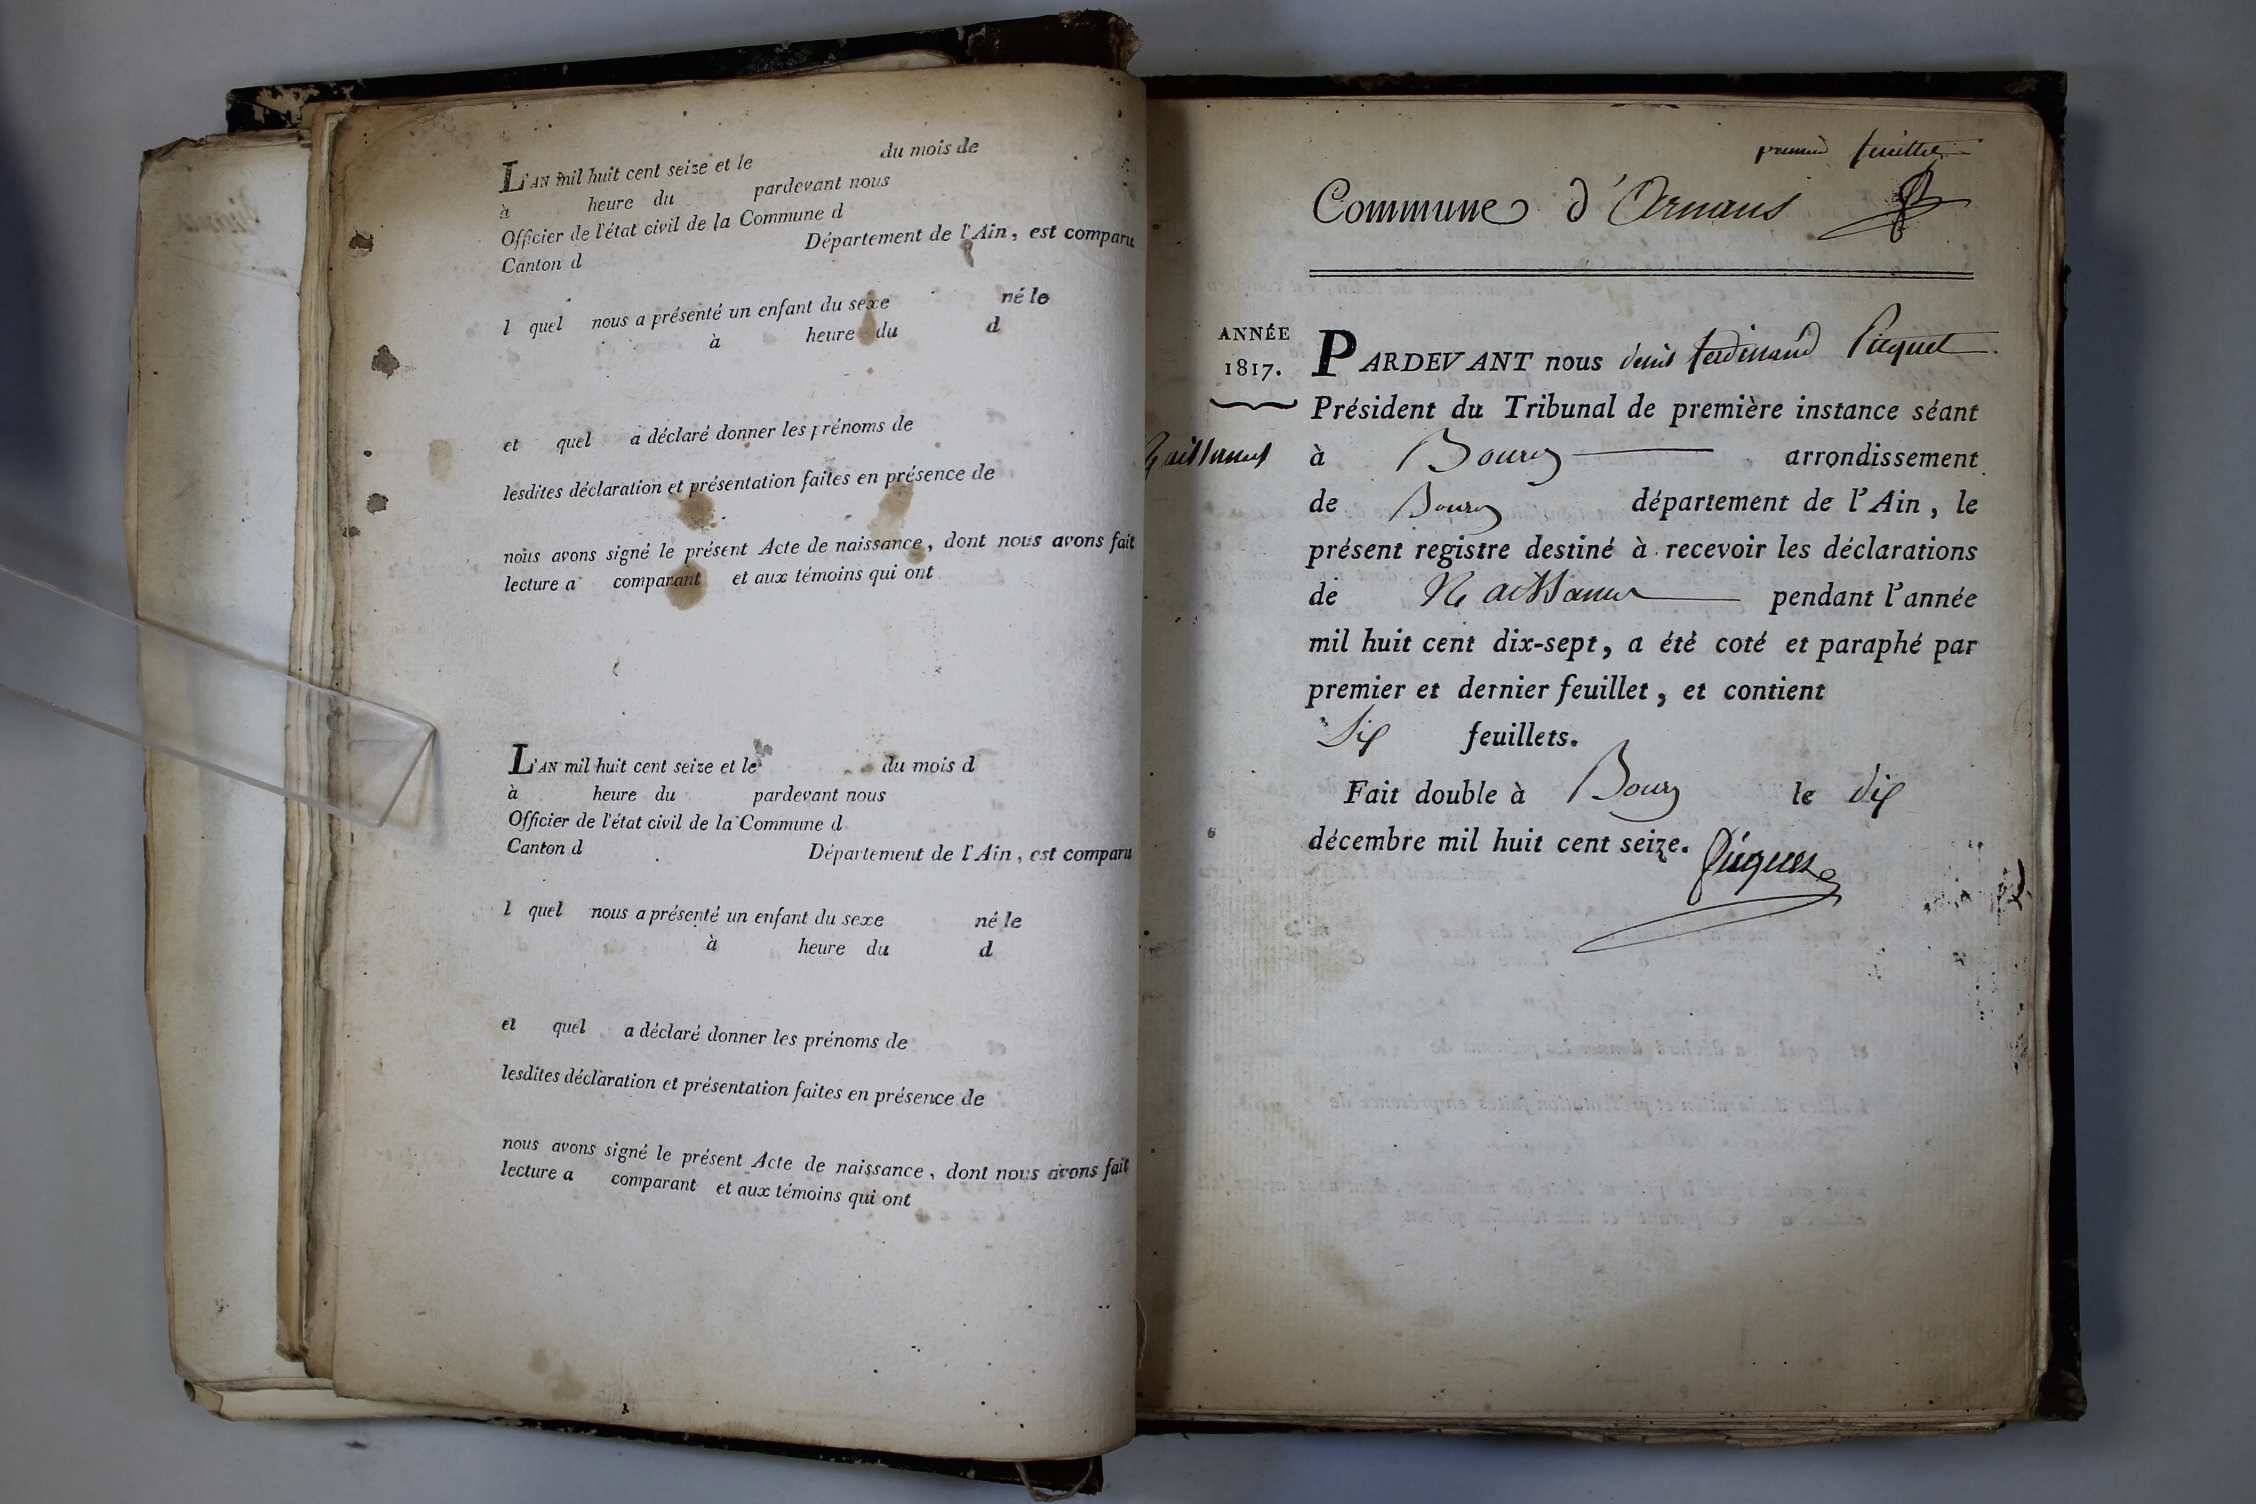 L'AN mil huit cent seize et le du mois de
à heure du pardevant nous
Officier de l'état civil de la Commune d
Canton d Département de l'Ain, est comparu
l quel nous a présenté un enfant du sexe né le
à heure du d
et quel a déclaré donner les prénoms de
lesdites déclaration et présentation faites en présence de
nous avons signé le présent Acte de naissance, dont nous avons fait
lecture a comparant et aux témoins qui ont
L'AN mil huit cent seize et le du mois d
à heure du pardevant nous
Officier de l'état civil de la Commune d
Canton d Département de l'Ain, est comparu
l quel nous a présenté un enfant du sexe né le
à heure du d
et quel a déclaré donner les prénoms de
lesdites déclaration et présentation faites en présence de
nous avons signé le présent Acte de naissance, dont nous avons fait
lecture a comparant et aux témoins qui ont
premier feuillet
Commune d'Arnans
ANNÉE
1817.
Naissances
PARDEVANT nous denis ferdinand Picquet
Président du Tribunal de première instance séant
à Bourg arrondissement
de Bourg département de l'Ain, le
présent registre destiné à recevoir les déclarations
de Naissances pendant l'année
mil huit cent dix-sept, a été coté et paraphé par
premier et dernier feuillet, et contient
Six feuillets.
Fait double à Bourg le dix
décembre mil huit cent seize.
Picquet